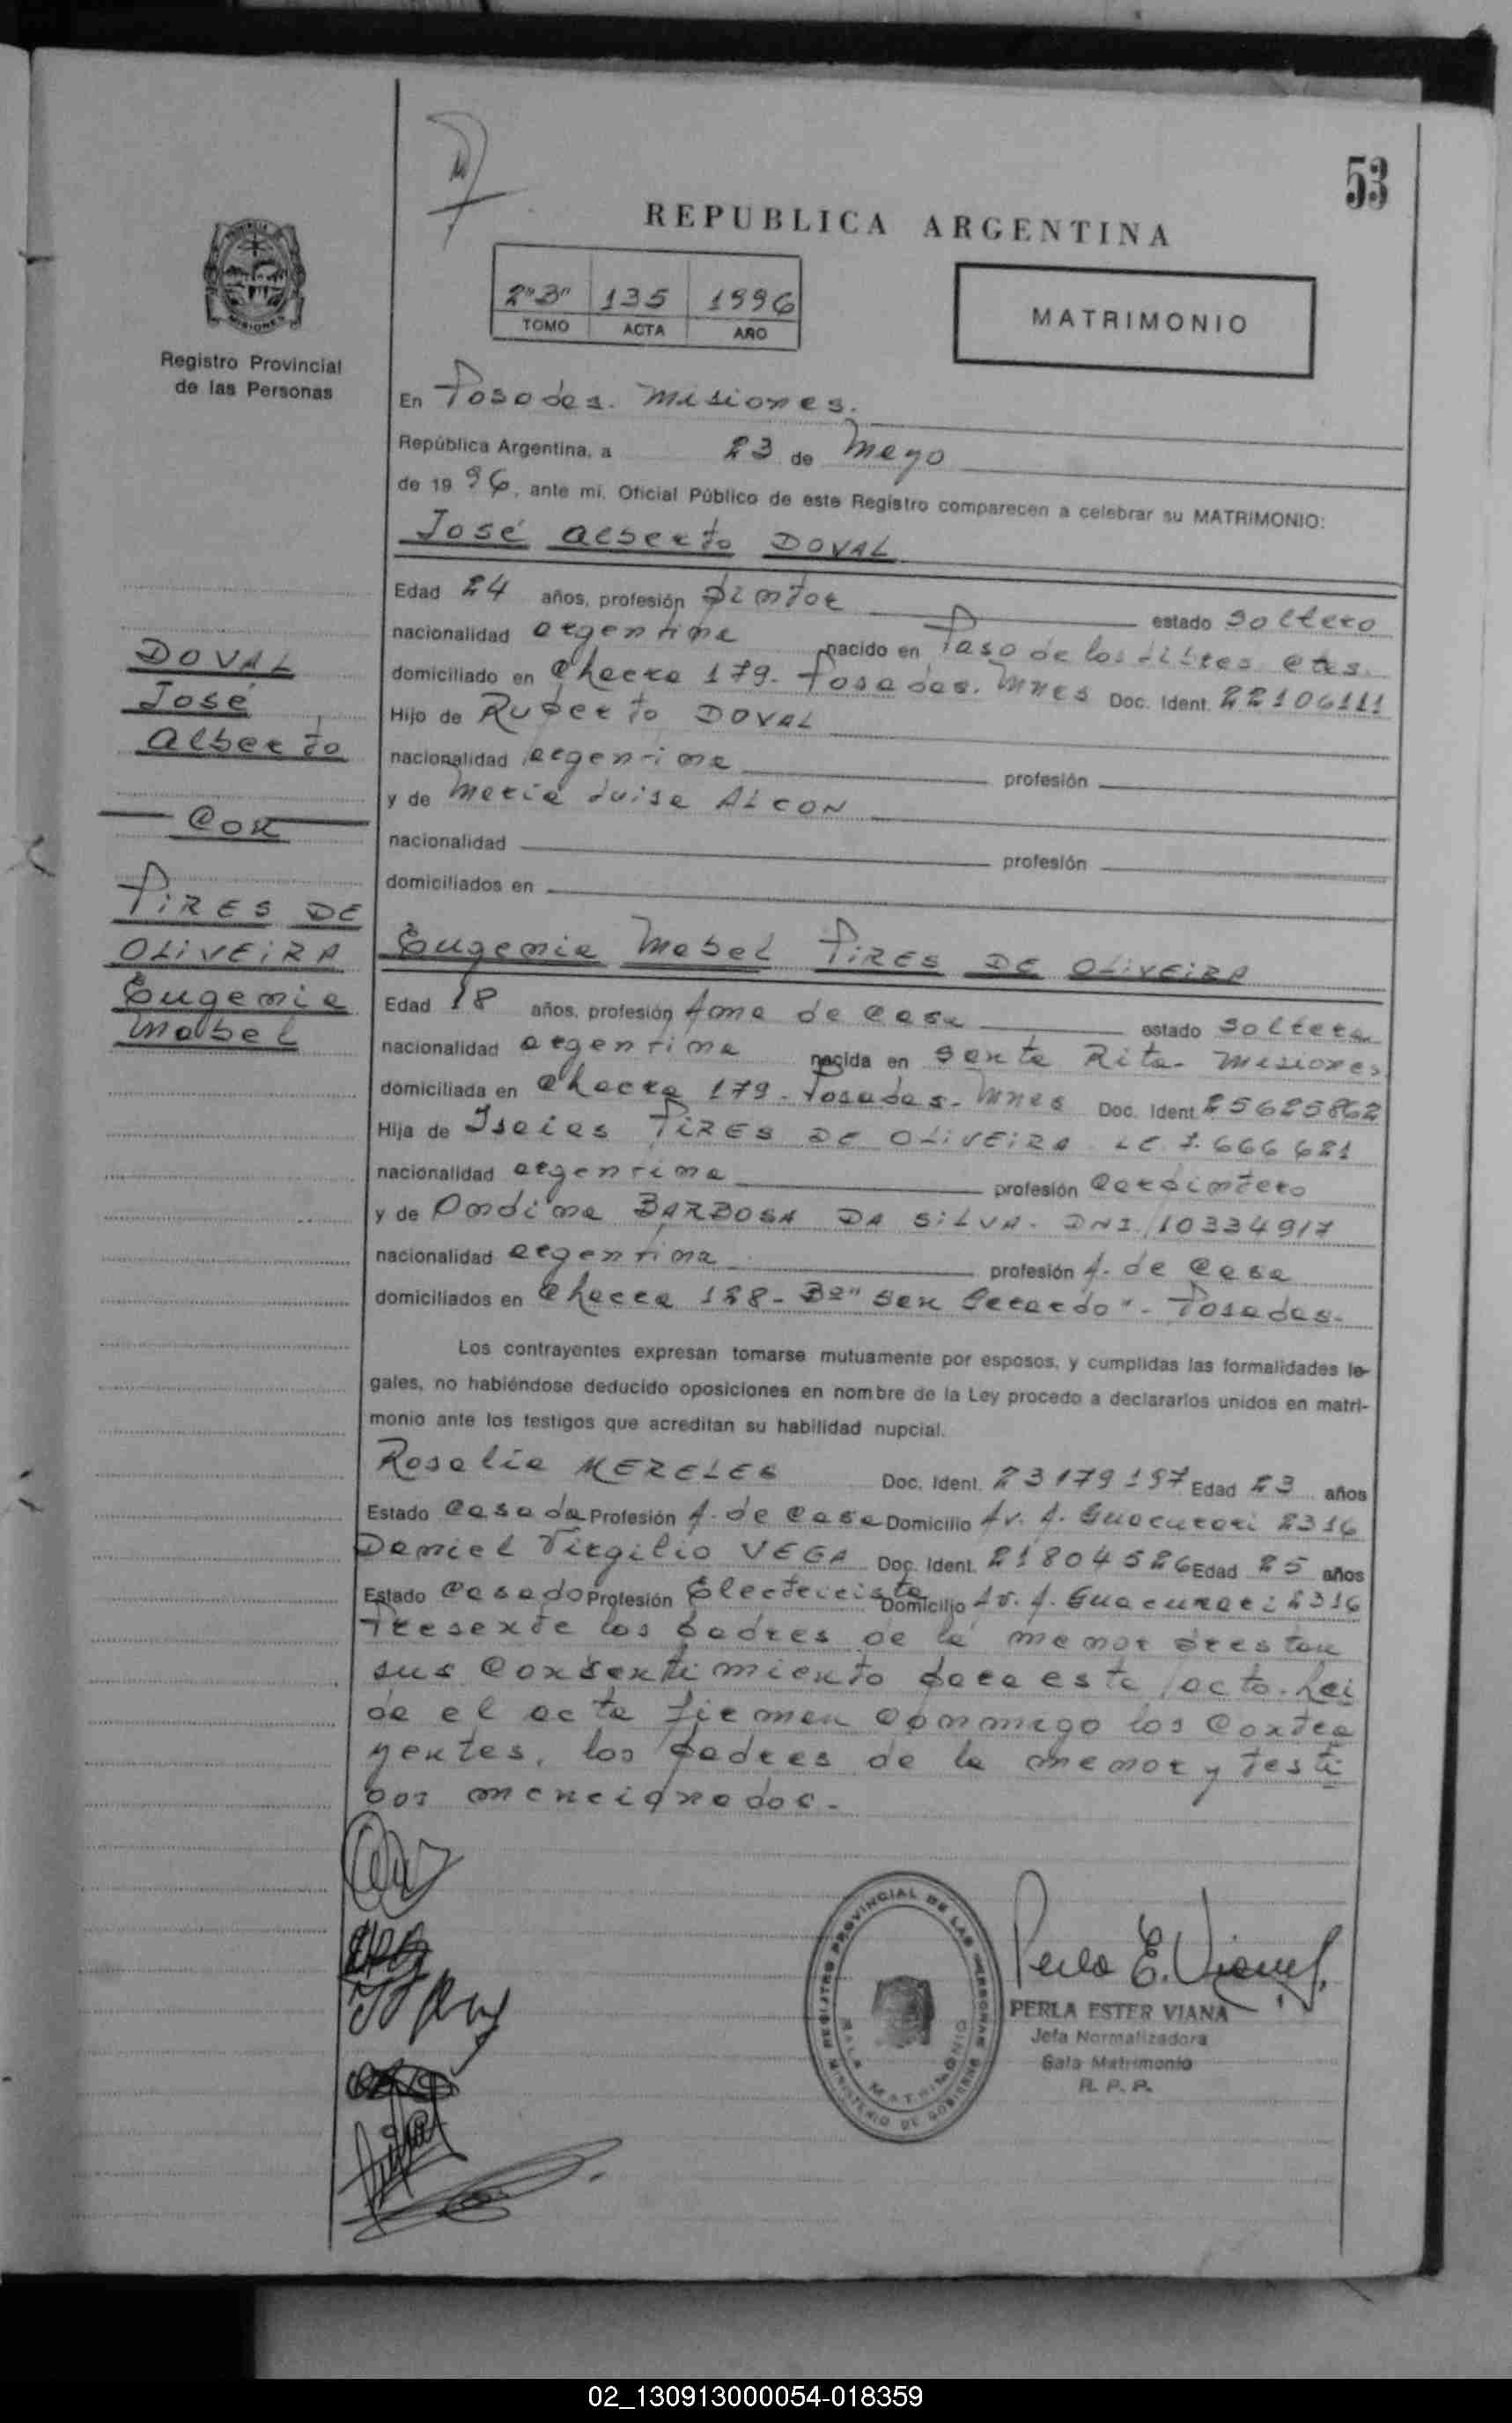 53
REPUBLICA ARGENTINA
2"B" 135 1996
TOMO ACTA AÑO
MATRIMONIO
MISIONES
Registro Provincial
de las Personas
En Posadas. Misiones.
República Argentina, a 23 de Mayo
de 1996, ante mí, Oficial Público de este Registro comparecen a celebrar su MATRIMONIO:
José Alberto DOVAL
Edad 24 años, profesión pintor estado soltero
nacionalidad argentina nacido en Paso de los Libres Ctes.
domiciliado en Chacra 179- Posadas. Mnes Doc. Ident. 22106111
Hijo de Ruberto DOVAL
nacionalidad argentina profesión
y de María Luisa ALCON
nacionalidad profesión
domiciliados en
DOVAL
José
Alberto
Con
PIRES DE
OLIVEIRA
Eugenia
Mabel
Eugenia Mabel PIRES DE OLIVEIRA
Edad 18 años, profesión Ama de Casa estado soltera
nacionalidad argentina nacida en Santa Rita- Misiones
domiciliada en Chacra 179- Posadas- Mnes Doc. Ident. 25625862
Hija de Isaias PIRES DE OLIVEIRA LE. 7.666681
nacionalidad argentina profesión Carpintero
y de Ondina BARBOSA DA SILVA- DNI 10334917
nacionalidad argentina profesión A. de Casa
domiciliados en Chacra 128- Bº "San Gerardo"- Posadas-
Los contrayentes expresan tomarse mutuamente por esposos, y cumplidas las formalidades le-
gales, no habiéndose deducido oposiciones en nombre de la Ley procedo a declararlos unidos en matri-
monio ante los testigos que acreditan su habilidad nupcial.
Rosalia MERELES Doc. Ident. 23179197 Edad 23 años
Estado Casada Profesión A. de Casa Domicilio Av. A. Guacurari 2316
Daniel Virgilio VEGA Doc. Ident. 21804526 Edad 25 años
Estado Casado Profesión Electricista Domicilio Av. A. Guacurari 2316
Presente los padres de la menor prestan
sus consentimiento para este acto. Lei
da el acta firman conmigo los contra
yentes, los padres de la menor y testi
gos mencionados.-
REGISTRO PROVINCIAL DE LAS PERSONAS
SALA MATRIMONIO
MINISTERIO DE GOBIERNO
Perla E. Viana
PERLA ESTER VIANA
Jefa Normalizadora
Sala Matrimonio
R. P. P.
02_130913000054-018359